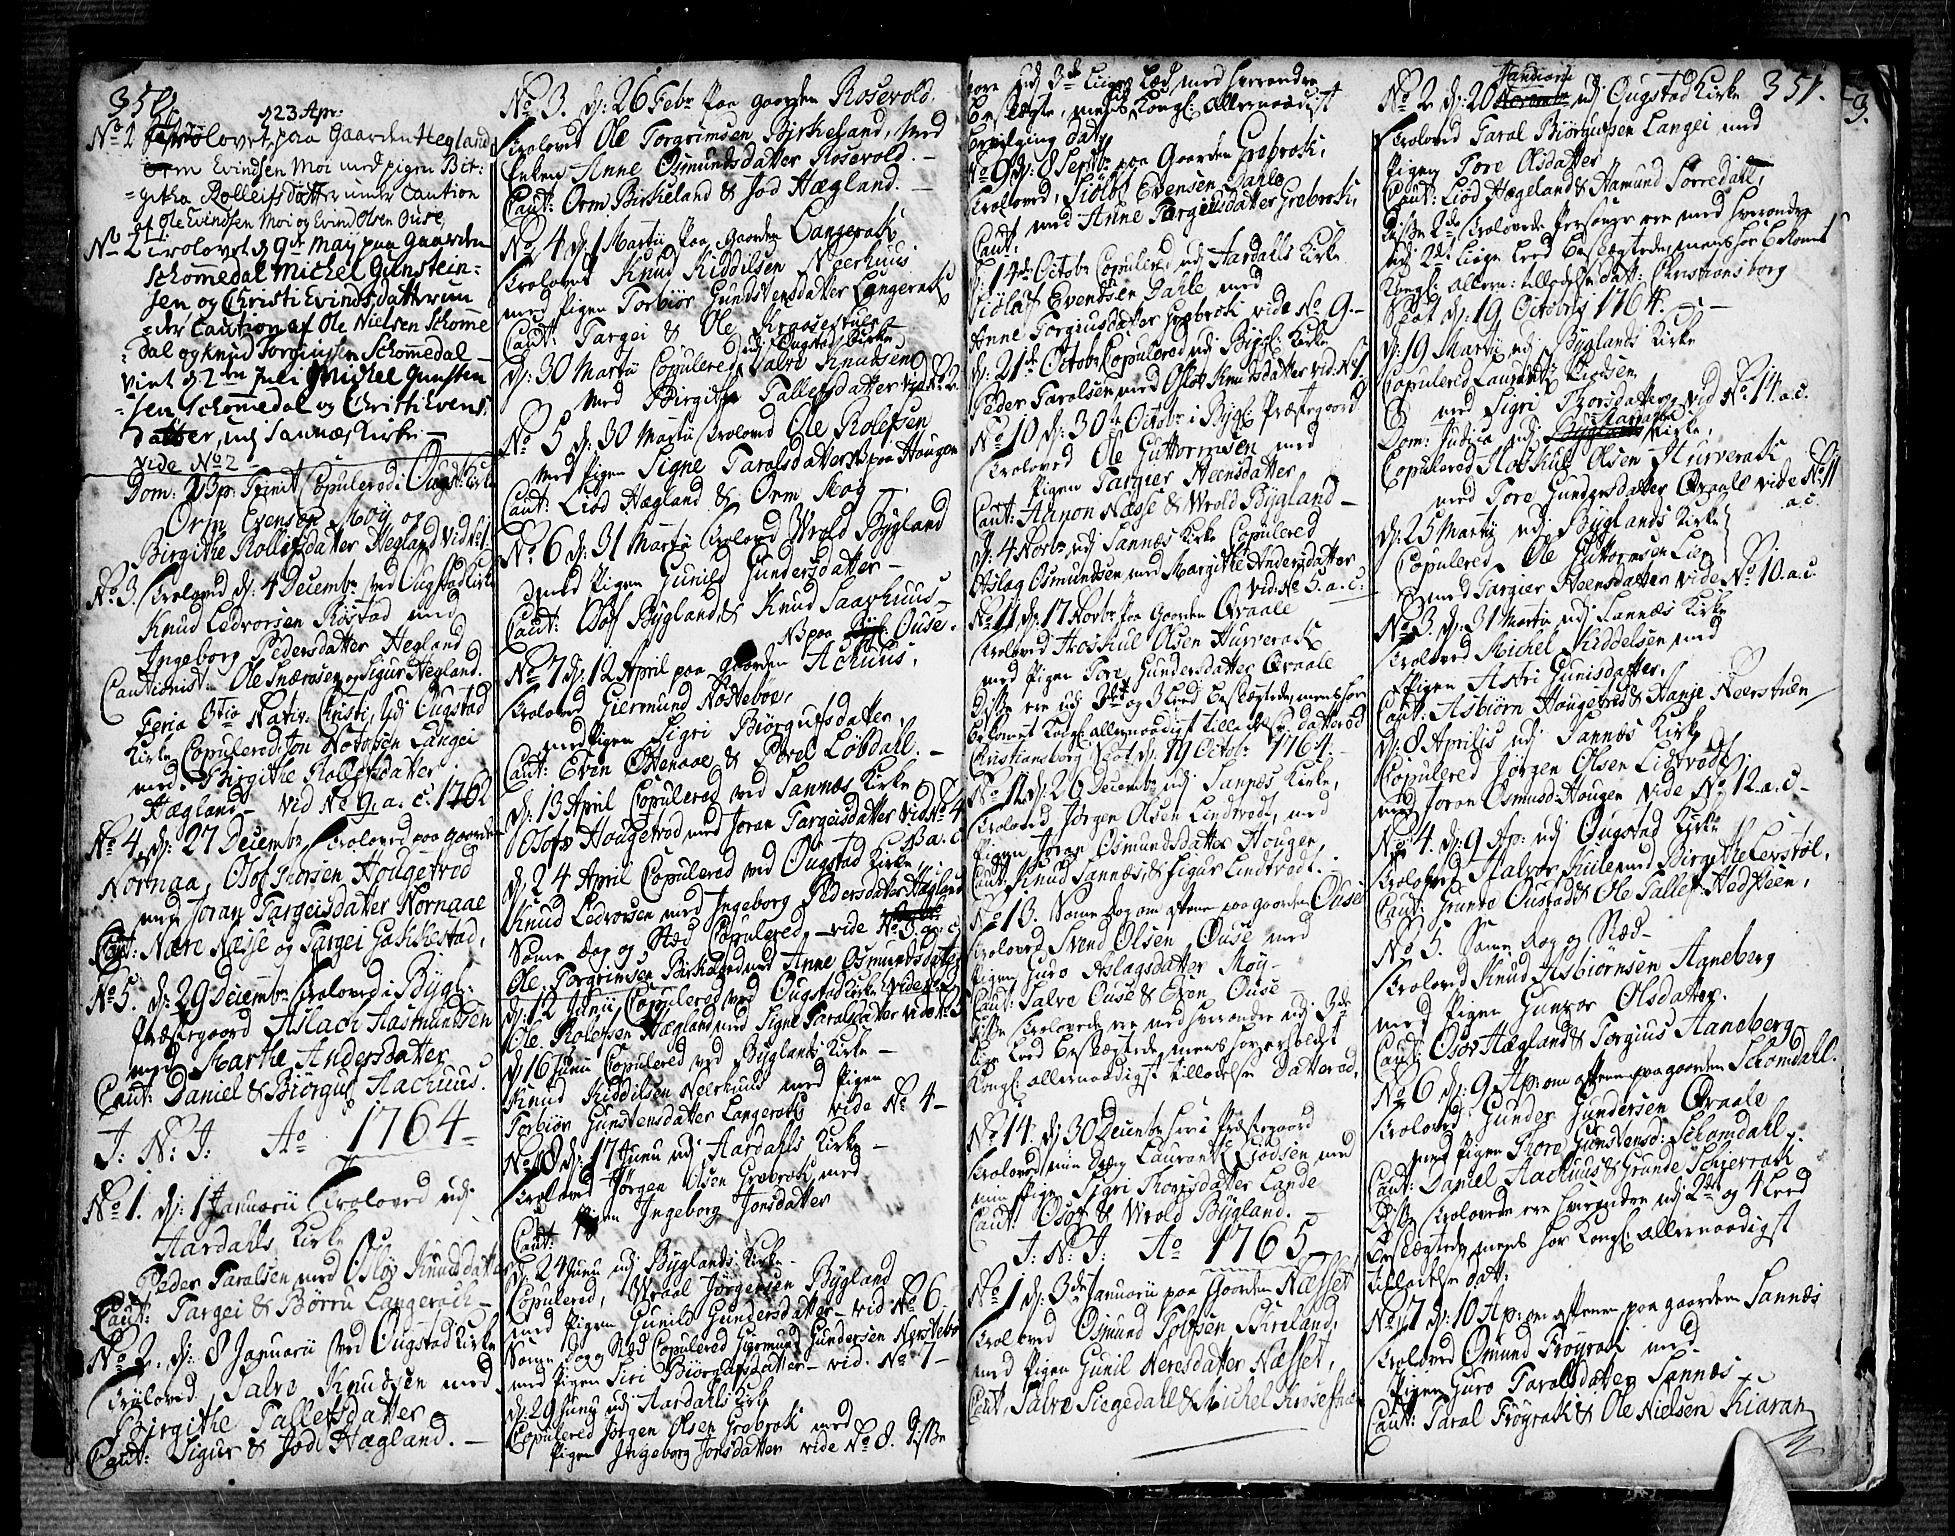 350.
d 23 Apr.
No 2 trolovet paa Gaarden Hegland
Orm Evindsen Moi med pigen Bir:
=githa Rolleifsdatter under Caution
af Ole Evindsen Moi og Evind Olsen Ouse,
No 2 trolovet d 9de May paa Gaarden
Schomedal Michel Gunstein=
sen og Christi Evindsdatter un
=der Caution af Ole Nielsen Schome
=dal og Knud Torgiussen Schomedal –
Viet d 2en Juli Michel Gunsten
=sen Schomedal og Christi Evens
datter, udj Sannæs Kirke –
vide No 2
Dom: 23 p: Trinit Copulered i Ougst: Kirke
Orm Evensen Moy og
Birgithe Rollefsdatter Hegland vid No 1.
No 3. Troloved d: 4 Decembr ved Ougstad Kirke
Knud Ledvorsen Röstad med
Ingeborg Pedersdatter Hegland
Cautionist: Ole Snæraasen og Sigur Hegland.
Feria 3tia Nativ: Christi, udj Ougstad
Kirke Copulered Jon Notosen Langei
med Birgithe Rollefsdatter
Hægland – vid No 9. a. c. 1762
No 4. d: 27 Decembr Troloved paa Gaarden
Nornaa, Osof Thorsen Hougetvod
med Joran Targeisdatter Nornaae
Caut: Nære Næsse og Targei Gakkestad,
No 5. d: 29 Decembr Trolovet i Bÿgl:
Præstegaard Aslach Aasmundsen
med Marthe Andersdatter
Caut: Daniel & Biörguf Aachuus.
J: N: J: Ao 1764
No 1. d: 1 Januarii Troloved udj
Aardahls Kirke
Peder Taralsen med Oslov Knudsdatter
Caut: Targei & Börru Langerach –
No 2. d: 8 Januarii ved Ougstad Kirke
Troloved Salve Knudsen med
Birgithe Tallefsdatter –
Caut: Sigur & Jod Hægland. –
No 3. d: 26 Febr paa Gaarden Rosevold.
Troloved Ole Torgrimsen Birkeland, med
Enken Anne Osmundsdatter Rosevold. –
Caut: Orm Birkeland & Jod Hægland. –
No 4 d: 1 Martii paa Gaarden Langerak
Troloved Knud Kiddilsen Neerhuus
med Pigen Torbiör Gundstensdatter Langerak
Caut: Targei & Ole Kraasestuen
d: 30 Martii Copulered udj Ougstad Kirke Salve Knudsen
med Birgithe Tallefsdatter vid No 2.
No 5 d: 30 Martii Troloved Ole Rolefsen
med Pigen Signe Taralsdatter paa Hougen
Caut: Liod Hægland & Orm Moy –
No 6 d: 31 Martii Troloved Wrold Bÿgland
med Pigen Gunild Gundersdatter –
Caut: Osof Bÿgland & Knud Saarhuus –
N3 paa Ouse.
No 7 d: 12 April paa Gaarden Achuus,
Troloved Giermund Nösteböe,
med Pigen Sigri Biörgufsdatter,
Caut: Even Östenaae & Povel Löbdall. –
d: 13 April Copulered ved Sannæs Kirke
Osofr Hougetvod med Joran Targeisdatter vid No 4
a. c.
d: 24 April Copulered ved Ougstad Kirke,
Knud Ledvorsen med Ingeborg Pedersdatter Hægland
Same Dag og Stæd Copulered, – vide No 3. a. c.
Ole Torgrimsen Birkeland med Anne Osmundsdatter
d: 12 Junii Copulered ved Ougstad Kirke vide No 3
Ole Rolefsen Hægland med Signe Taralsdatter vide No 5
d: 16 Junii Copulered ved Bÿglands Kirke –
Knud Kiddilsen Neerhuus med Pigen
Torbiör Gunstensdatter Langerak vide No 4 –
No 8 d: 17 Junii udj Aardahls Kirke –
Troloved Jörgen Olsen Grebrok, med
Pigen Ingeborg Jonsdatter
Caut:
d: 24 Junii udj Bÿglands Kirke –
Copulered, Wraal Jörgensen Bÿgland
med Pigen Gunild Gundersdatter – vid No 6
Same Dag og Stæd Copulered Giermund Gundersen Nörstebö
med Pigen Siri Biörgufsdatter – vid: No 7 –
d: 29 Junii udj Aardahls Kirke
Copulered Jörgen Olsen Grebrok med
Pigen Ingeborg Jonsdatter vide No 8. Disse
vare udj 3de Liige Leed med hverandre
Beslegtede, mens Kongl: Allernaadigst
Bevilging dat:
No 9 d: 8 Septbr paa Gaarden Grebrok,
Troloved, Siölof Evensen Dahle
med Anne Torgiusdatter Grebrok,
Caut:
d: 14de Octobr Copulered, udj Aardalls Kirke
Siölof Evendsen Dahle med
Anne Torgiusdatter Grebrok vide No 9. –
d: 21de Octobr Copulered udj Bÿgl: Kirke
Peder Taralsen med Oslov Knudsdatter vid: No 1
No 10 d: 30te Octobr i Bÿgl: Præstegaard
Troloved Ole Guttormsen med
Pigen Targier Steensdatter
Caut: Aanon Næsse & Wrold Bÿgland –
d: 4 Novbr udj Sannæs Kirke Copulered
Aslag Osmundsen med Margithe Andersdatter
vid: No 5. a. c.
No 11 d: 17 Novbr paa Gaarden Qvaale
Troloved Hoskul Olsen Hurverak
med Pigen Tore Gundersdatter Qvaale
Disse ere udj 2det og 3 Leed Beslegtede mens har
bekomet Kongl: allernaadigst tilladelse datterad
Christiansborg Slot d: 19 Octobr 1764.
No 12 d: 26 Decembr udj Sannæs Kirke,
Troloved Jörgen Olsen Lindtvedt, med
Pigen Joran Osmundsdatter Hougen,
Caut: Knud Sannæs, & Sigur Lindtvedt. –
No 13. Same Dag om aftene paa gaarden Ouse
Troloved Svend Olsen Ouse med
Pigen Guro Aslagsdatter Moÿ –
Caut: Salve Ouse & Even Ouse –
disse Trolovede ere med hverandre udj 3de
Liige Leed Beslægtede, mens har erholdet
Kongl: allernaadigst tilladelse datterad,
No 14. d: 30 Decembr her i Præstegaard
Troloved min Dreng Laurentz Liodsen med
min Pige Sigri Thoresdatter Lande
Caut: Osof & Wrold Bÿgland. –
J: N: J: Ao 1765
No 1 d: 3de Januarii paa Gaarden Næsset
Troloved Osmund Tolfsen Kireland,
med Pigen Gunil Neresdatter Næsset,
Caut: Salve Liegedall & Michel Krosestuen
351.
3.
No 2 d: 20 Januarii udj Ougstad Kirke
Troloved Taral Biörgufsen Langei med
Pigen Tore Olsdatter
Caut: Liöd Hægeland & Hamund Torredall,
disse 2de Trolovede Personer ere med hverandre
udj 2det Liige Leed Beslægtede, mens har bekomet
Kongl: allern: tilladelse datt: Christiansborg
Slot d: 19 Octobris 1764. –
d: 19 Martii udj Bÿglands Kirke
Copulered Laurentz Liodsen
med Sigri Thorsdatter vid No 14. a. c.
Dom: Judica udj Kirke,
Copulered Hoskul Olsen Hurverak
med Tore Gundersdatter Qvaale vide No 11
a. c.
d: 25 Martii udj Bÿglands Kirke
Copulered, Ole Guttormsen Lie
med Targier Steensdatter vide No 10. a. c.
No 3. d: 31 Martii udj Sannæs Kirke
Troloved Michel Kiddelsen med
Pigen Astri Gunisdatter,
Caut: Asbiörn Hougetvedt & Hanje Neerstuen
d: 8 Aprilis udj Sannæs Kirke
Copulered Jörgen Olsen Lidtvedt
med Joran Osmusd: Hougen vide No 12. a. c –
No 4. d: 9 Ap: udj Ougstad Kirke
Troloved Halvor Kiile med Birgithe Lerstöl,
Caut: Grunde Oustad & Ole Tallef: Hedsteen,
No 5. Same Dag og Stæd –
Troloved Knud Asbiörnsen Aaneberg
med Pigen Gunvor Olsdatter.
Caut: Osov Hægland & Torgius Aaneberg
No 6. d: 9 Ap: om aftene paa gaarden Schomdahl.
Troloved Gunder Gundersen Qvaale
med Pigen Thore Gunstensd: Schomdahl –
Caut: Daniel Aachuus & Grunde Schierrak
Disse Trolovede ere hverandre udj 2det og 4 Leed
beslægtede mens har Kongl: allernaadigst
tilladelse datt:
No 7 d: 10 Ap: om aftenen paa gaarden Sannæs
Troloved Omund Fröÿrak med
Pigen Guro Taralsdatter Sannæs
Caut: Taral Fröÿrak & Ole Nielsen Kiaran